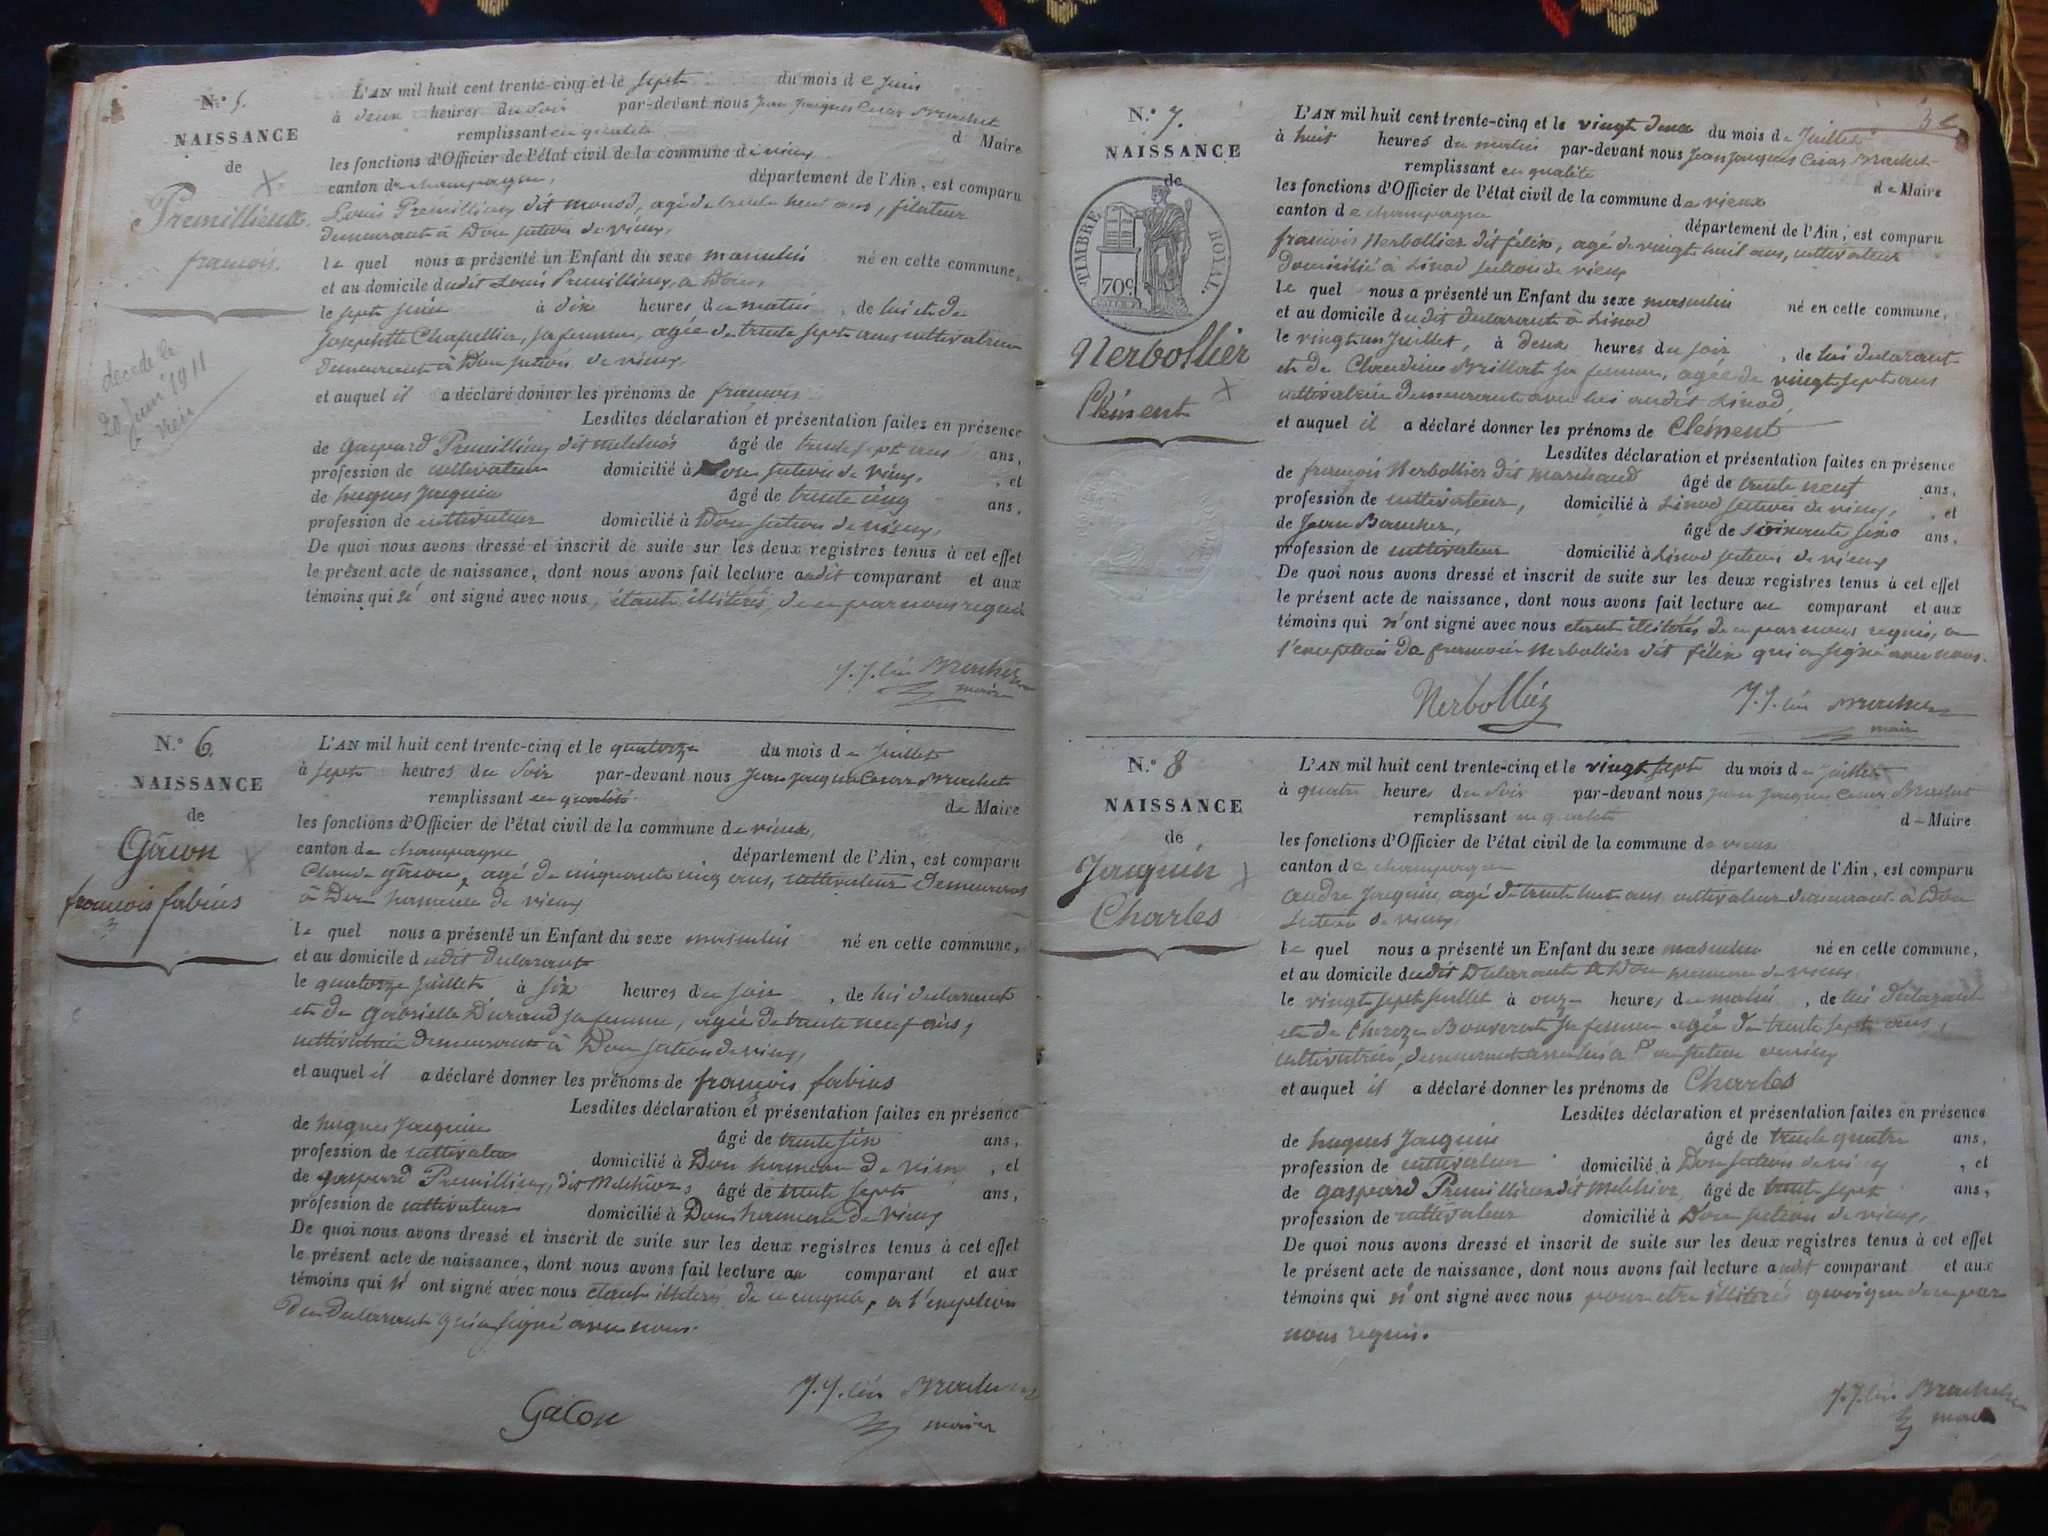 N.° 5.
NAISSANCE
de
Premillieux
françois.
décédé le
20 juin 1911
L'AN mil huit cent trente-cinq et le sept du mois de juin
à deux heures du soir par-devant nous Jean Jacques César Brachet
remplissant en qualité d Maire
les fonctions d'Officier de l'état civil de la commune de vieux
canton de champagne, département de l'Ain, est comparu
Louis Premillieux dit , agé de trente neuf ans, 
demeurant à Don section de vieux,
le quel nous a présenté un Enfant du sexe masculin né en cette commune,
et au domicile dudit Louis Premillieux, a Don,
le sept juin à dix heures du matin, de lui et de
Josephtte Chapellier, sa femme, agée de trente sept ans cultivatrice
demeurant à Don section de vieux.
et auquel il a déclaré donner les prénoms de françois
Lesdites déclaration et présentation faites en présence
de gaspard Premillieux dit melchior âgé de trente sept ans ans,
profession de cultivateur domicilié à Don section de vieux, et
de hugues Jacquin âgé de trente cinq ans,
profession de cultivateur domicilié à Don section de vieux,
De quoi nous avons dressé et inscrit de suite sur les deux registres tenus à cet effet
le présent acte de naissance, dont nous avons fait lecture audit comparant et aux
témoins qui n' ont signé avec nous, étant illitérés, de ce par nous requis
J. J. Brachet
maire
N.° 6.
NAISSANCE
de
Gacon
françois fabius
L'AN mil huit cent trente-cinq et le quatorze du mois de Juillet
à sept heures du soir par-devant nous Jean Jacques César Brachet
remplissant en qualité de Maire
les fonctions d'Officier de l'état civil de la commune de vieux,
canton de champagne département de l'Ain, est comparu
Claude gacon, agé de cinquante cinq ans, cultivateur demeurant
à Don hameau de vieux
le quel nous a présenté un Enfant du sexe masculin né en cette commune,
et au domicile dudit déclarant
le quatorze juillet à six heures du soir, de lui déclarant
et de gabrielle Durand sa femme, agée de trente neuf ans,
cultivatrice demeurant à Don section de vieux,
et auquel il a déclaré donner les prénoms de françois fabius
Lesdites déclaration et présentation faites en présence
de hugues Jacquin âgé de trente six ans,
profession de cultivateur domicilié à Don hameau de vieux, et
de gaspard Premillieux, dit Melchior, âgé de trente sept ans,
profession de cultivateur domicilié à Don hameau de vieux
De quoi nous avons dressé et inscrit de suite sur les deux registres tenus à cet effet
le présent acte de naissance, dont nous avons fait lecture au comparant et aux
témoins qui n' ont signé avec nous étant illiterés de ce enquis, a l'exception
du déclarant qui a signé avec nous.
Gacon
J. J. Brachet
maire
N.° 7.
NAISSANCE
de
TIMBRE ROYAL.
70c
Nerbollier
Clément
L'AN mil huit cent trente-cinq et le vingt deux du mois de Juillet
à huit heures du matin par-devant nous Jean Jacques César Brachet
remplissant en qualité de Maire
les fonctions d'Officier de l'état civil de la commune de vieux
canton de champagne département de l'Ain, est comparu
françois Nerbollier dit félix, agé de vingt huit ans, cultivateur
domicilié à Linod section de vieux
le quel nous a présenté un Enfant du sexe masculin né en cette commune,
et au domicile dudit déclarant à Linod
le vingt un Juillet, à deux heures du soir, de lui déclarant
et de Claudine Brillat sa femme, agée de vingt sept ans
cultivatrice demeurante avec lui audit Linod
et auquel il a déclaré donner les prénoms de Clément
Lesdites déclaration et présentation faites en présence
de françois Nerbollier dit marchand âgé de trente neuf ans,
profession de cultivateur, domicilié à Linod section de vieux, et
de Jean âgé de soixante six ans,
profession de cultivateur domicilié à Linod section de vieux
De quoi nous avons dressé et inscrit de suite sur les deux registres tenus à cet effet
le présent acte de naissance, dont nous avons fait lecture au comparant et aux
témoins qui n'ont signé avec nous étant illitérés de ce par nous requis, a
l'exception de françois Nerbollier dit félix qui a signé avec nous.
Nerbolliez
J. J. Brachet
maire
N.° 8
NAISSANCE
de
Jacquin
Charles
L'AN mil huit cent trente-cinq et le vingt sept du mois de juillet
à quatre heures du soir par-devant nous Jean Jacques César Brachet
remplissant en qualité d Maire
les fonctions d'Officier de l'état civil de la commune de vieux
canton de champagne département de l'Ain, est comparu
andré Jacquin agé de trente huit ans cultivateur demeurant à Don
section de vieux
le quel nous a présenté un Enfant du sexe masculin né en cette commune,
et au domicile dudit Déclarant à Don hameau de vieux
le vingt sept juillet à onze heures du matin, de lui déclarant
et de Bouverat sa femme agée de trente sept ans,
cultivatrice, demeurant avec lui a Don section de vieux
et auquel il a déclaré donner les prénoms de Charles
Lesdites déclaration et présentation faites en présence
de hugues Jacquin âgé de trente quatre ans,
profession de cultivateur domicilié à Don section de vieux, et
de gaspard Premillieux dit Melchior, âgé de trente sept ans,
profession de cultivateur domicilié à Don section de vieux,
De quoi nous avons dressé et inscrit de suite sur les deux registres tenus à cet effet
le présent acte de naissance, dont nous avons fait lecture audit comparant et aux
témoins qui n'ont signé avec nous pour etre illitérés quoique de ce par
nous requis.
J. J. Brachet
maire